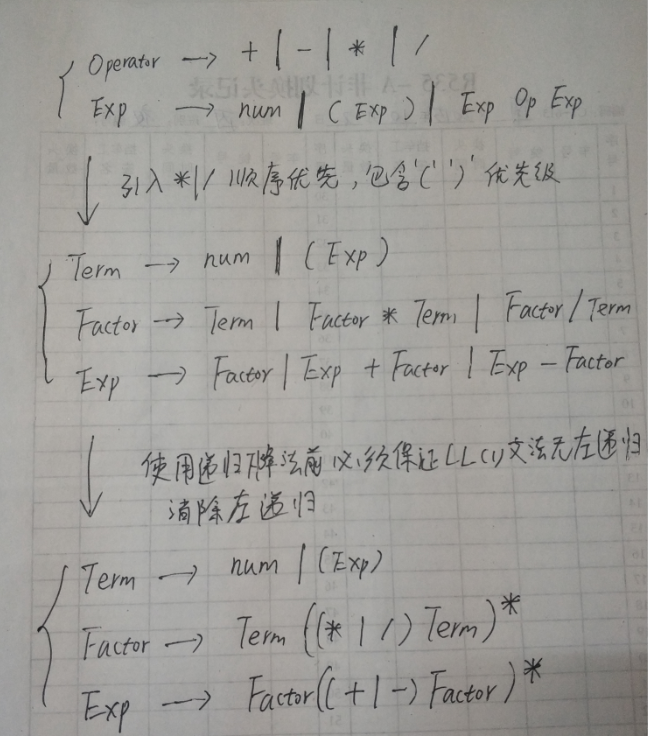 Operator → + | - | * | /
Exp → num | (Exp) | Exp Op Exp
引入 *|/ 顺序优先,包含'(' ')' 优先级
Term → num | (Exp)
Factor → Term | Factor * Term | Factor / Term
Exp → Factor | Exp + Factor | Exp - Factor
使用递归下降法前必须保证LL(1)文法无左递归
消除左递归
Term → num | (Exp)
Factor → Term((* | /) Term)*
Exp → Factor((+ | -) Factor)*